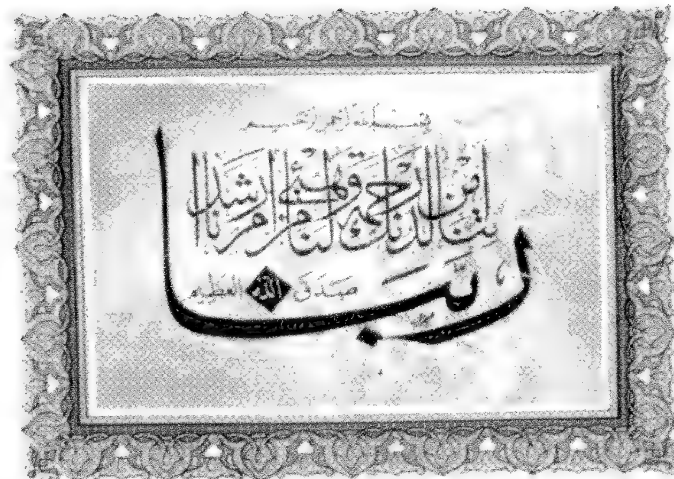 بسم الله الرحمن الرحيم
ربنا
آتنا من لدنك رحمة وهيئ لنا من أمرنا رشدا
صدق الله العظيم